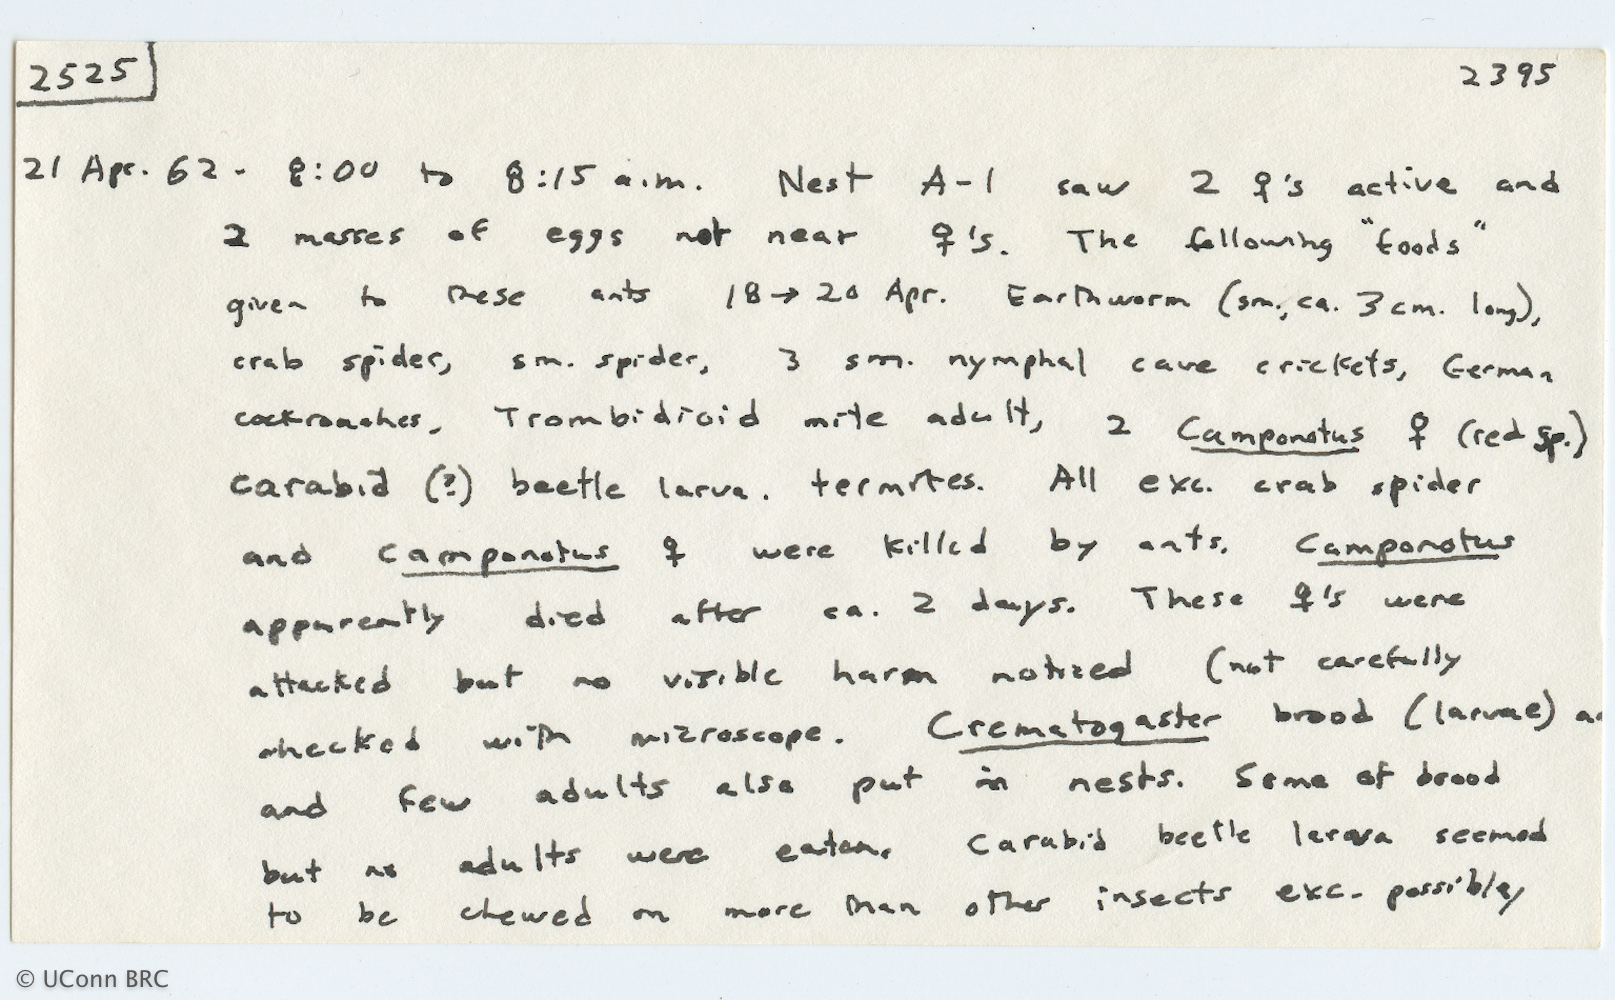 2525
2395
21 Apr. 62 - 8:00 to 8:15 a.m. Nest A-1 saw 2 ♀'s active and
2 masses of eggs not near ♀'s. The following "foods"
given to these ants 18→20 Apr. Earthworm (sm., ca. 3 cm. long),
crab spider, sm. spider, 3 sm. nymphal cave crickets, German
cockroaches, Trombidioid mite adult, 2 Camponotus ♀ (red sp.)
carabid (?) beetle larva. termites. All exc. crab spider
and Camponotus ♀ were killed by ants. Camponotus
apparently died after ca. 2 days. These ♀'s were
attacked but no visible harm noticed (not carefully
checked with microscope. Crematogaster brood (larvae) an
and few adults also put in nests. Some of brood
but no adults were eaten. Carabid beetle larva seemed
to be chewed on more than other insects exc. possibly
© UConn BRC